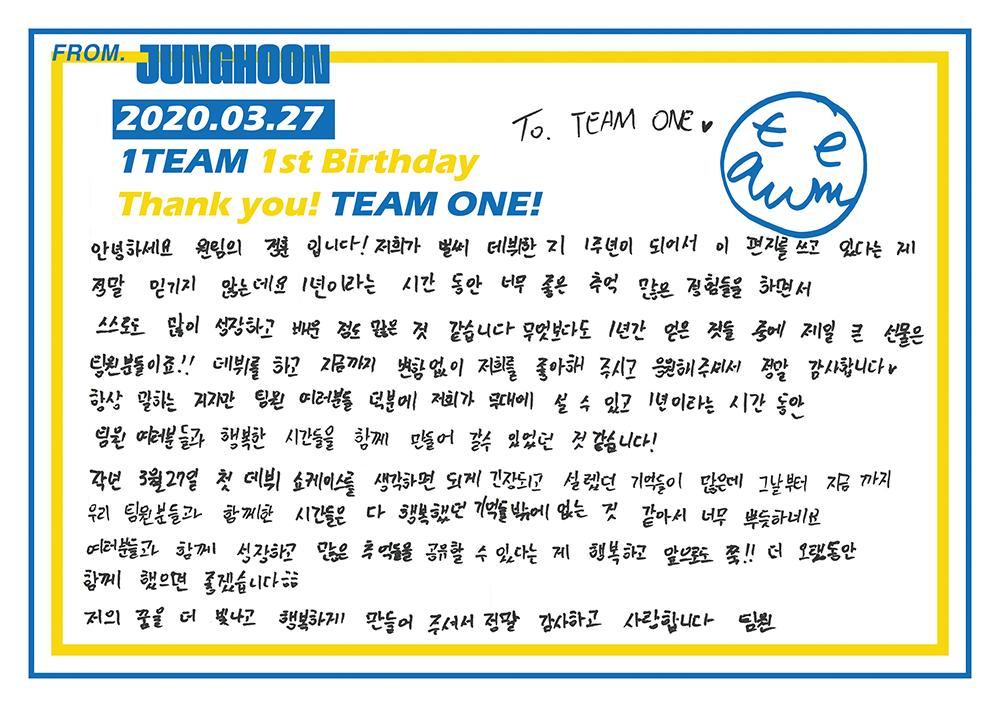 FROM. JUNGHOON
2020.03.27
1TEAM 1st Birthday
Thank you! TEAM ONE!
To. TEAM ONE♥
안녕하세요 원팀의 정훈 입니다! 저희가 벌써 데뷔한 지 1주년이 되어서 이 편지를 쓰고 있다는 게
정말 믿기지 않는데요 1년이라는 시간 동안 너무 좋은 추억 많은 경험들을 하면서
스스로도 많이 성장하고 배운 점도 많은 것 같습니다 무엇보다도 1년간 얻은 것들 중에 제일 큰 선물은
팀원분들이죠!! 데뷔를 하고 지금까지 변함없이 저희를 좋아해 주시고 응원해주셔서 정말 감사합니다♥
항상 말하는 거지만 팀원 여러분들 덕분에 저희가 무대에 설 수 있고 1년이라는 시간 동안
팀원 여러분들과 행복한 시간들을 함께 만들어 갈수 있었던 것 같습니다!
작년 3월27일 첫 데뷔 쇼케이스를 생각하면 되게 긴장되고 설렜던 기억들이 많은데 그날부터 지금 까지
우리 팀원분들과 함께한 시간들은 다 행복했던 기억들밖에 없는 것 같아서 너무 뿌듯하네요
여러분들과 함께 성장하고 많은 추억들을 공유할 수 있다는 게 행복하고 앞으로도 쭉!! 더 오랫동안
함께 했으면 좋겠습니다ㅎㅎ
저의 꿈을 더 빛나고 행복하게 만들어 주셔서 정말 감사하고 사랑합니다 팀원